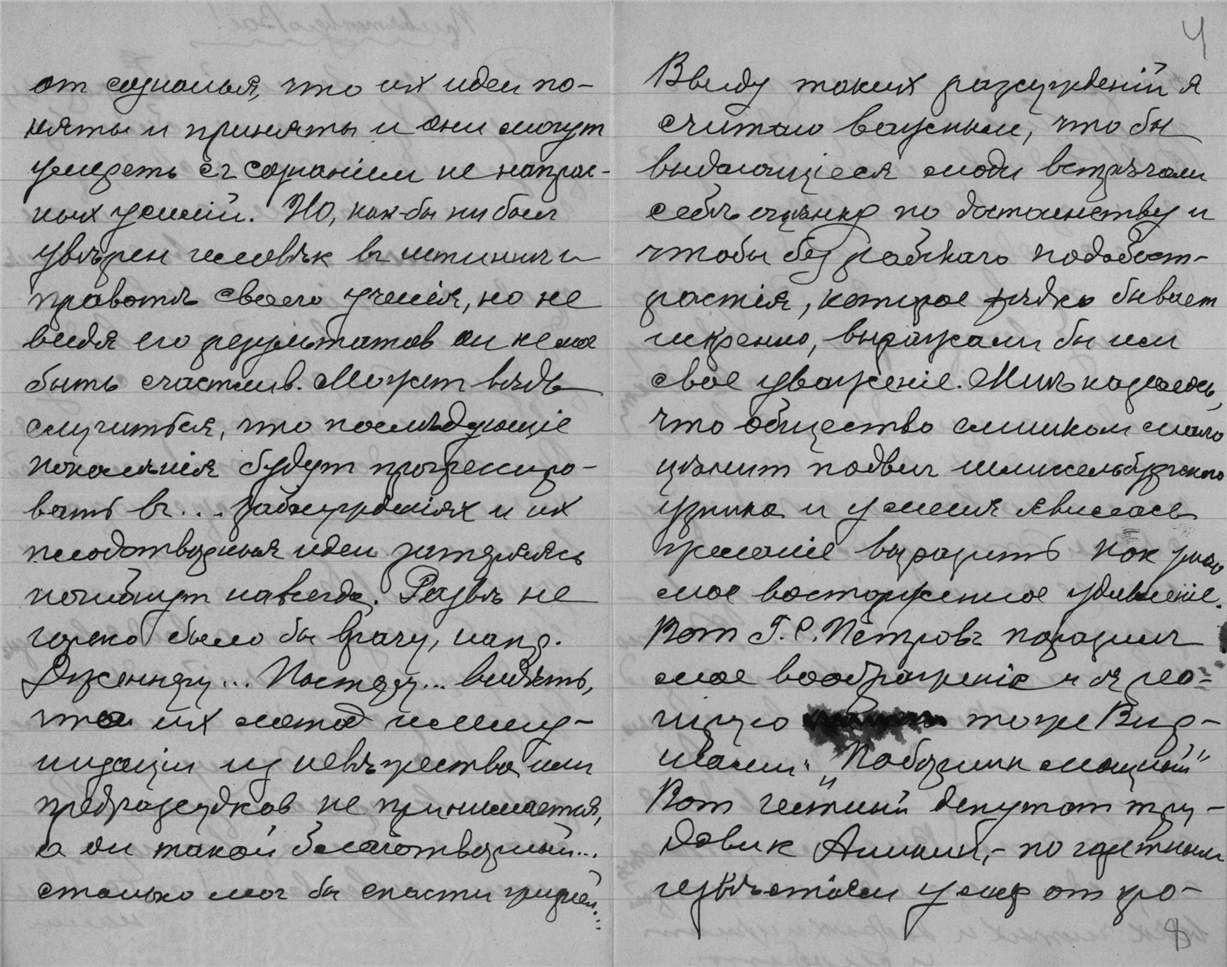 от сознанья, что их идеи по-
няты и приняты и они могут
умереть съ сознанiем не напрас-
ных усилiй. Но, как-бы ни был
увѣрен человѣк въ истинѣ и
правотѣ своего ученiя, но не
видя его результатов он не мож
быть счастлив. Может вѣдь
случиться, что послѣдующiе
поколѣнiя будут прогрессиро-
вать въ... заблужденiях и их
плодотворныя идеи затеряясь
погибнут навсегда. Развѣ не
горько было бы врачу, напр.
Дженнеру... Пастеру... видѣть,
что их метод иммун-
низацiи из невѣжества или
предразсудков не принимается,
а он такой благотворный...
столько мог бы спасти жизней...
4
Ввиду таких разсужденiй я
считаю важным, что бы
выдающiеся люди встрѣчали
себѣ оцѣнку по достоинству и
чтобы без рабскаго подобост-
растiя, которое рѣдко бывает
искренно, выражали бы им
свое уваженiе. Мнѣ казалось,
что общество слишком мало
цѣнит подвиг шлиссельбургскаго
узника и у меня явилось
желанiе выразить как умѣю
мое восторженное удивленiе.
Вот Г. С. Петровъ поразил
мое воображенiе и я
тоже
„
Вот честный депутат тру-
довик Аникин, - по газетным
извѣстiям умер от кро-
8